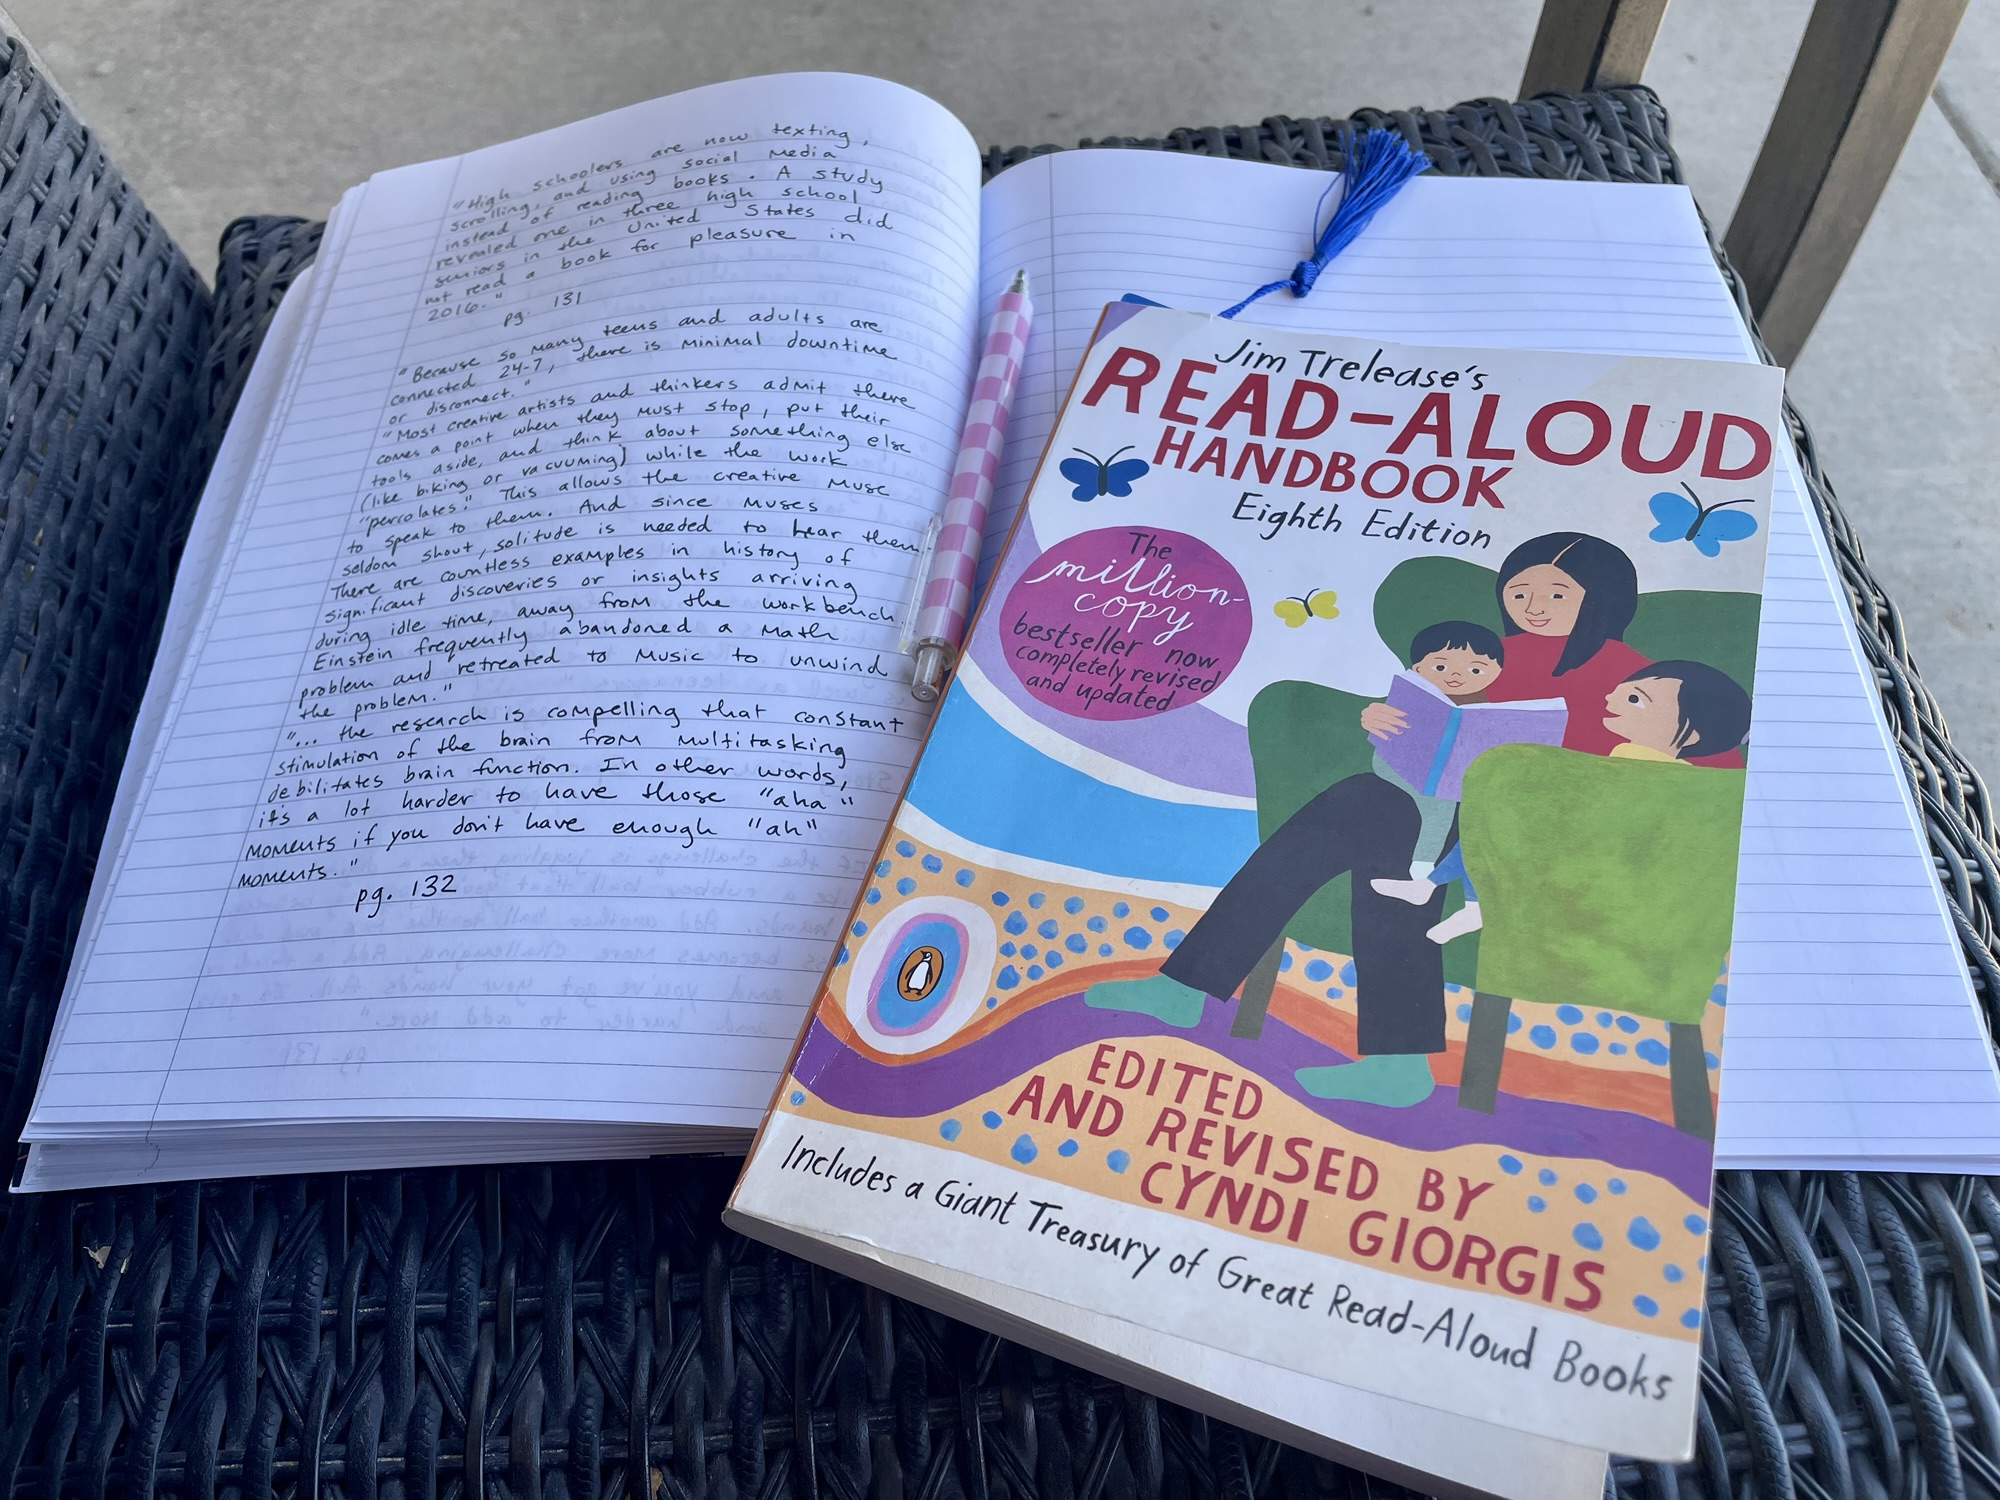 "High schoolers are now texting,
scrolling, and using social media
instead of reading books. A study
revealed one in three high school
seniors in the United States did
not read a book for pleasure in
2016."
pg. 131
"Because so many teens and adults are
connected 24-7, there is minimal downtime
or disconnect."
"Most creative artists and thinkers admit there
comes a point when they must stop, put their
tools aside, and think about something else
(like biking or vacuuming) while the work
"percolates." This allows the creative muse
to speak to them. And since muses
seldom shout, solitude is needed to hear them.
There are countless examples in history of
significant discoveries or insights arriving
during idle time, away from the workbench.
Einstein frequently abandoned a math
problem and retreated to music to unwind
the problem."
"... the research is compelling that constant
stimulation of the brain from multitasking
debilitates brain function. In other words,
it's a lot harder to have those "aha"
moments if you don't have enough "ah"
moments."
pg. 132
Jim Trelease's
READ-ALOUD
HANDBOOK
Eighth Edition
The
million-
copy
bestseller now
completely revised
and updated
EDITED
AND REVISED BY
CYNDI GIORGIS
Includes a Giant Treasury of Great Read-Aloud Books